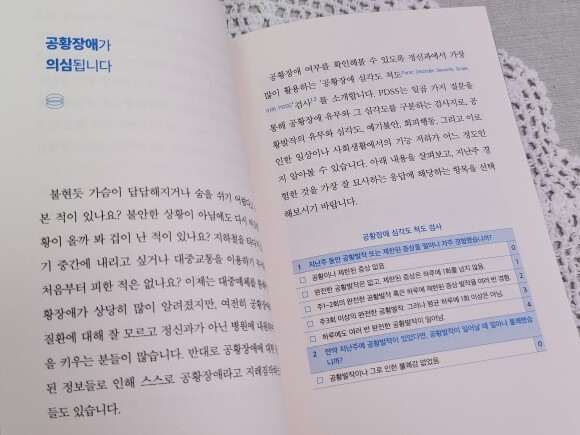 공황장애가
의심됩니다
불현듯 가슴이 답답해지거나 숨을 쉬기 어렵다고
본 적이 있나요? 불안한 상황이 아님에도 다시
황이 올까 봐 겁이 난 적이 있나요? 지하철을
기 중간에 내리고 싶거나 대중교통을 이용하기
처음부터 피한 적은 없나요? 이제는 대중매체를
황장애가 상당히 많이 알려졌지만, 여전히
질환에 대해 잘 모르고 정신과가 아닌 병원에
을 키우는 분들이 많습니다. 반대로 공황장애에
된 정보들로 인해 스스로 공황장애라고
들도 있습니다.
공황장애 여부를 확인해볼 수 있도록 정신과에서 가장
많이 활용하는 '공황장애 심각도 척도Panic Disorder Severity Scale,
이하 PDSS 검사'²를 소개합니다. PDSS는 일곱 가지 질문을
통해 공황장애 유무와 그 심각도를 구분하는 검사지로, 공
황발작의 유무와 심각도, 예기불안, 회피행동, 그리고 이로
인한 일상이나 사회생활에서의 기능 저하가 어느 정도인
지 알아볼 수 있습니다. 아래 내용을 살펴보고, 지난주 경
험한 것을 가장 잘 묘사하는 응답에 해당하는 항목을 선택
해보시기 바랍니다.
공황장애 심각도 척도 검사
1 지난주 동안 공황발작 또는 제한된 증상을 얼마나 자주 경험했습니까?
□ 공황이나 제한된 증상 없음. 0
□ 완전한 공황발작은 없고, 제한된 증상은 하루에 1회를 넘지 않음. 1
□ 주1~2회의 완전한 공황발작 혹은 하루에 제한된 증상을 여러 번 경험. 2
□ 주3회 이상의 완전한 공황발작. 그러나 평균 하루에 1회 이상은 아님. 3
□ 하루에도 여러 번 완전한 공황발작이 일어남. 4
2 만약 지난주에 공황발작이 있었다면, 공황발작이 일어날 때 얼마나 불쾌했습
니까?
□ 공황발작이나 그로 인한 불쾌감 없었음. 0